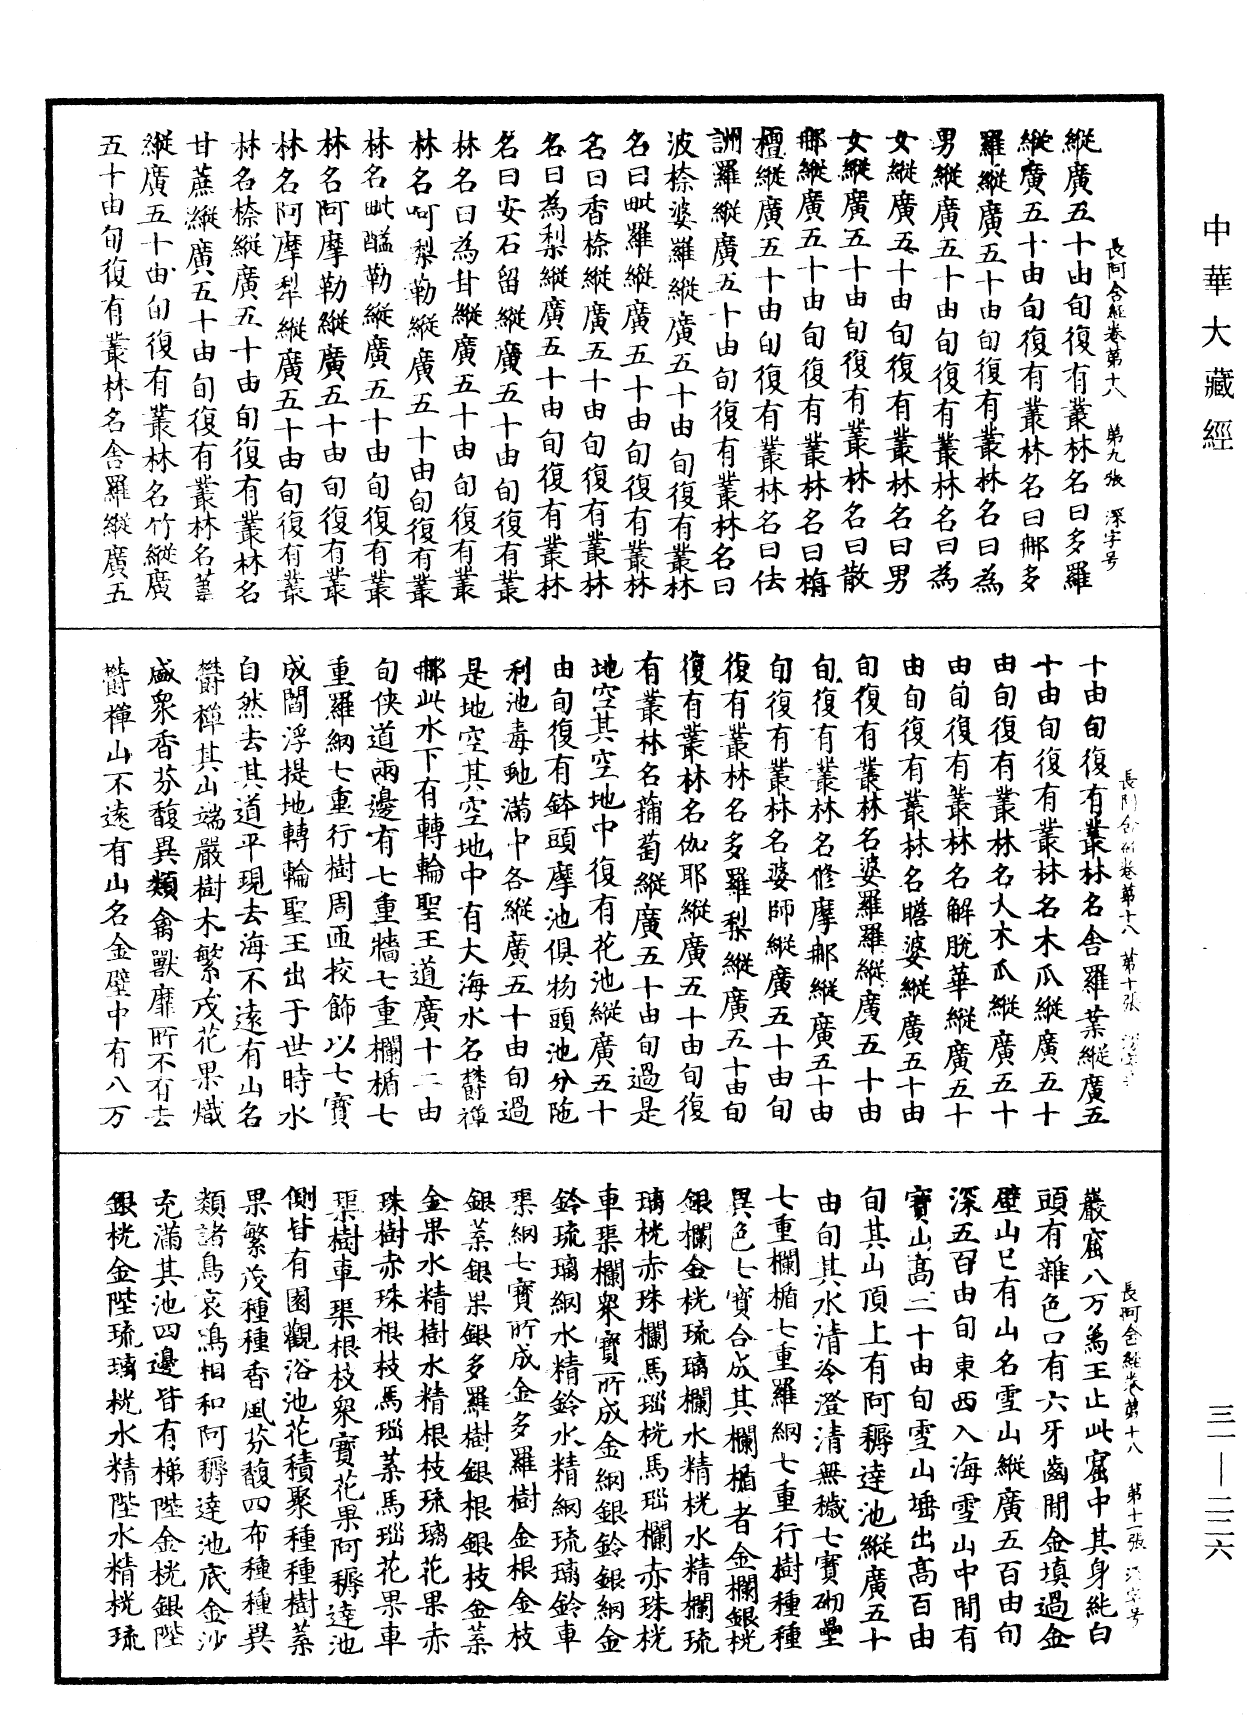 中華大藏經
長阿含經卷第十八　第九張　深字号
縱廣五十由旬復有叢林名曰多羅
縱廣五十由旬復有叢林名曰那多
羅縱廣五十由旬復有叢林名曰為
男縱廣五十由旬復有叢林名曰為
女縱廣五十由旬復有叢林名曰男
女縱廣五十由旬復有叢林名曰散
那縱廣五十由旬復有叢林名曰栴
檀縱廣五十由旬復有叢林名曰佉
詶羅縱廣五十由旬復有叢林名曰
波㮈婆羅縱廣五十由旬復有叢林
名曰毗羅縱廣五十由旬復有叢林
名曰香㮈縱廣五十由旬復有叢林
名曰為梨縱廣五十由旬復有叢林
名曰安石留縱廣五十由旬復有叢
林名曰為甘縱廣五十由旬復有叢
林名呵梨勒縱廣五十由旬復有叢
林名毗醯勒縱廣五十由旬復有叢
林名阿摩勒縱廣五十由旬復有叢
林名阿摩犁縱廣五十由旬復有叢
林名㮈縱廣五十由旬復有叢林名
甘蔗縱廣五十由旬復有叢林名葦
縱廣五十由旬復有叢林名竹縱廣
五十由旬復有叢林名舍羅縱廣五
長阿含經卷第十八　第十張
十由旬復有叢林名舍羅葉縱廣五
十由旬復有叢林名木瓜縱廣五十
由旬復有叢林名大木瓜縱廣五十
由旬復有叢林名解脫華縱廣五十
由旬復有叢林名瞻婆縱廣五十由
旬復有叢林名婆羅羅縱廣五十由
旬復有叢林名修摩那縱廣五十由
旬復有叢林名婆師縱廣五十由旬
復有叢林名多羅梨縱廣五十由旬
復有叢林名伽耶縱廣五十由旬復
有叢林名蒲萄縱廣五十由旬過是
地空其空地中復有花池縱廣五十
由旬復有鉢頭摩池俱物頭池分陁
利池毒虵滿中各縱廣五十由旬過
是地空其空地中有大海水名欝禪
那此水下有轉輪聖王道廣十二由
旬俠道兩邊有七重牆七重欄楯七
重羅網七重行樹周匝挍飾以七寶
成閻浮提地轉輪聖王出于世時水
自然去其道平現去海不遠有山名
欝禪其山端嚴樹木繁茂花果熾
盛眾香芬馥異類禽獸靡所不有去
欝禪山不遠有山名金壁中有八万
長阿含經卷第十八　第十一張　深字号
巖窟八万爲王止此窟中其身純白
頭有雜色口有六牙齒間金填過金
壁山已有山名雪山縱廣五百由旬
深五百由旬東西入海雪山中間有
寶山高二十由旬雪山埵出高百由
旬其山頂上有阿耨達池縱廣五十
由旬其水清泠澄清無穢七寶砌壘
七重欄楯七重羅網七重行樹種種
異色七寶合成其欄楯者金欄銀桄
銀欄金桄琉璃欄水精桄水精欄琉
璃桄赤珠欄馬瑙桄馬瑙欄赤珠桄
車𤦲欄眾寶所成金網銀鈴銀網金
鈴琉璃網水精鈴水精網琉璃鈴車
𤦲網七寶所成金多羅樹金根金枝
銀葉銀果銀多羅樹銀根銀枝金葉
金果水精樹水精根枝琉璃花果赤
珠樹赤珠根枝馬瑙葉馬瑙花果車
𤦲樹車𤦲根枝眾寶花果阿耨達池
側皆有園觀浴池花積聚種種樹葉
果繁茂種種香風芬馥四布種種異
類諸鳥哀鳴相和阿耨達池底金沙
充滿其池四邊皆有梯陛金桄銀陛
銀桄金陛琉璃桄水精陛水精桄琉
三一—二二六